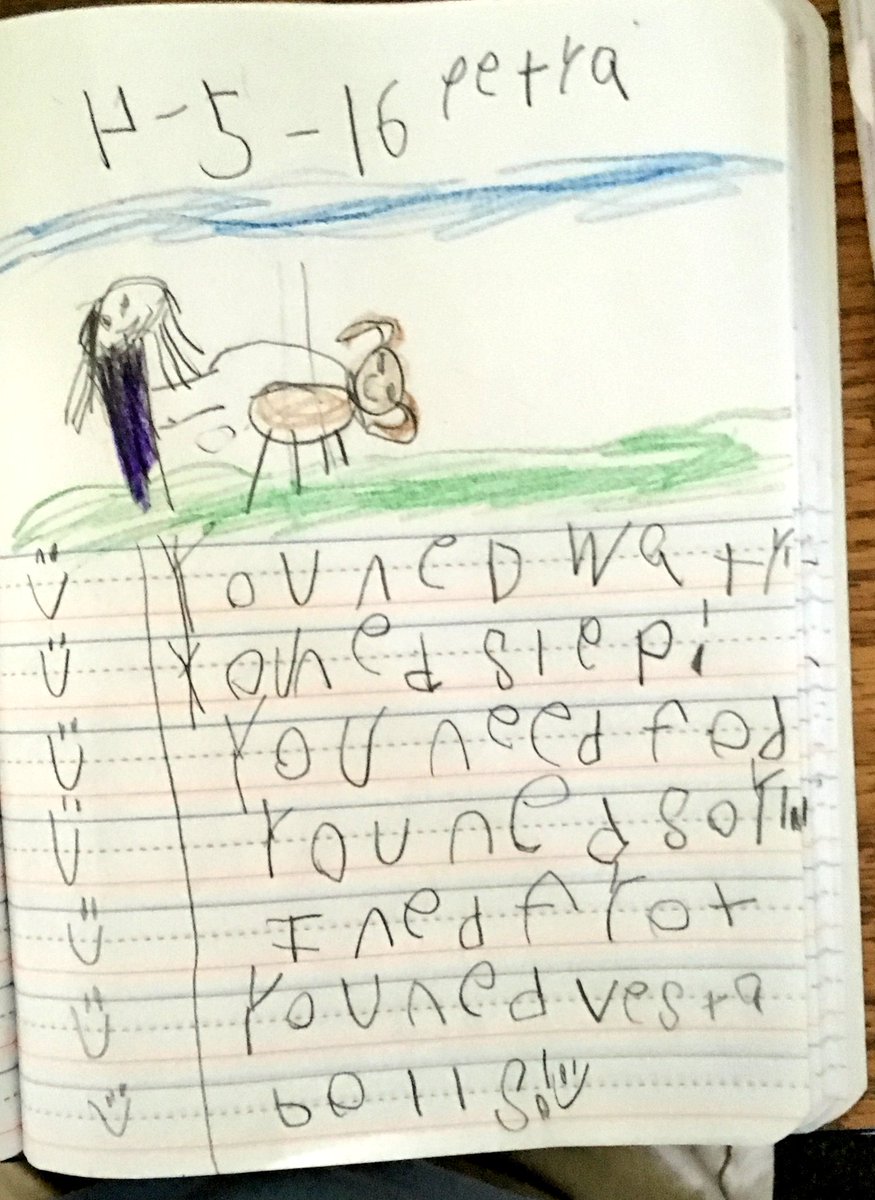 4-5-16 petra
You neD watr
You ned slep!
You need fod
You ned sorin
I ned frot
You ned vesta
bolls!